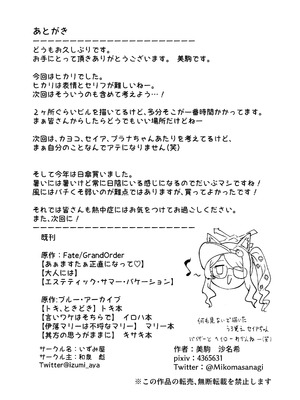 あとがき
どうもお久しぶりです。
お手にとって頂きありがとうございます。 美駒です。
今回はヒカリでした。
ヒカリは表情とセリフが難しいねー。
次回はそういうのも含めて考えよう…！
２ヶ所ぐらいビルを描いてるけど、多分そこが一番時間かかってます。
まぁ皆さんからしたらどうでもいい場所だけどねー
次回は、カヨコ、セイア、プラナちゃんあたりを考えてるけど、
まぁ自分のことなんでアテになりません（笑）
そして今年は日傘買いました。
暑いには暑いけど常に日陰にいる感じになるのでだいぶマシですね！
風にはバチくそ弱いのが難点ではありますが、買ってよかったです！
それでは皆さんも熱中症にはお気をつけてお過ごしください。
また、次回に！
既刊
原作：Fate/GrandOrder
【あぁますたぁ正直になって♡】
【大人には】
【エステティック・サマー・バケーション】
原作:ブルー・アーカイブ
【トキ、ときどき】トキ本
【言いワケはそちらで】 イロハ本
【伊落マリーは不埒なマリー】 マリー本
【其方の思うがままに】 キサキ本
サークル名：いずみ屋
サークル主：和泉 彪
Twitter@izumi_ava
何も見ないで描いた
うろ覚え セイアちゃん
作者：美駒 沙名希
pixiv：4365631
Twitter：@Mikomasanagi
※この作品の転売、無断転載を禁止します